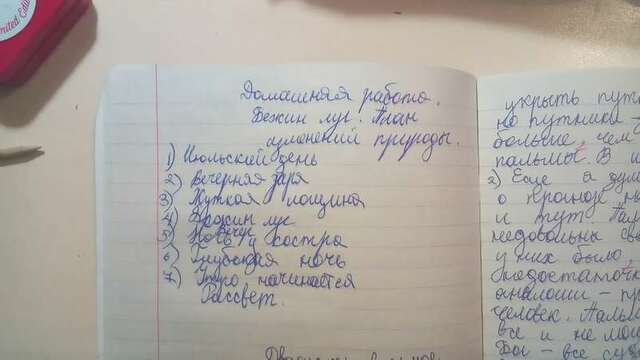 Limited Edit
Домашняя работа.
Бежин луг. План
изменений природы.
1) Июльский день
2) Вечерняя заря
3) Жуткая лощина
4) Бежин луг
5) Ночь у костра
6) Глубокая ночь
7) Утро начинается
Рассвет.
укрыть пут
но путники
больше, чем
пальмы. В и
2) Еще а дум
о
и тут Пал
недовольны св
у них было
недостаточн
аналоги - пр
человек. Паль
все и не мо
Бог все